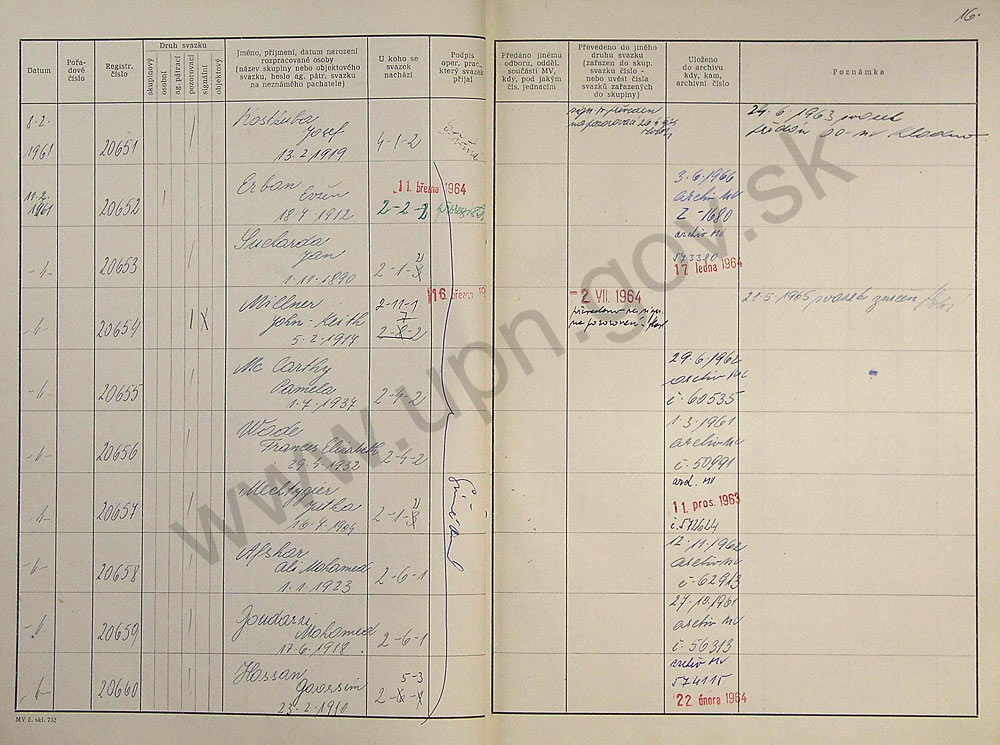 16.
Datum
Pořa-
dové
číslo
Registr.
číslo
Druh svazku
skupinový
osobní
ag. pátrací
pozorovací
signální
objektový
Jméno, příjmení, datum narození
rozpracované osoby
(název skupiny nebo objektového
svazku, heslo ag. pátr. svazku
na neznámého pachatele)
U koho se
svazek
nachází
Podpis
oper. prac.,
který svazek
přijal
Předáno jinému
odboru, odděl.
součásti MV,
kdy, pod jakým
čís. jednacím
Převedeno do jiného
druhu svazku
(zařazen do skup.
svazku číslo -
nebo uvést čísla
svazků zařazených
do skupiny)
Uloženo
do archivu
kdy, kam,
archivní číslo
Poznámka
8-2-
1961
20651
Kostkuba
Josef
13.2.1919
4-1-2
24.6.1963 svazek
11.2.
1961
20652
Erban
Evžen
18.4.1912
11. března 1964
2-2-2
3.6.1966
archiv MV
Z-1680
20653
Suchardа
Jan
1.11.1890
2-1-
archiv MV
573380
17 ledna 1964
20654
Millner
John-Keith
5.2.1917
16. březen
2-11-1
7
2-X-2
- 2. VII. 1964
21.5.1965 svazek zničen
20655
Mc Carthy
Pamela
1.7.1937
2-4-2
29.6.1962
archiv MV
č. 60535
20656
Wade
Frances Elizabeth
29.4.1932
2-4-2
1.3.1961
archiv MV
č. 50991
20657
Mechtygier
Jytka
16.4.1904
2-1-
arch. MV
11. pros. 1963
č. 572624
20658
Afshar
Ali Mohamed
1.1.1923
2-6-1
12.11.1962
archiv MV
č. 62913
20659
Goudarzi
Mohamed
17.6.1918
2-6-1
27.10.1961
archiv MV
č. 56313
20660
Hassan
Goassim
23.2.1910
5-3
2-X-X
archiv MV
574115
22. února 1964
MV č. skl. 732
www.upn.gov.sk